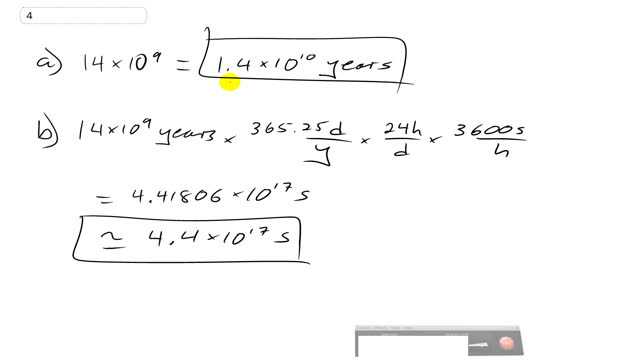 4
a) 14 × 10⁹ = 1.4 × 10¹⁰ years
b) 14×10⁹ years × 365.25d/y × 24h/d × 3600s/h
= 4.41806 × 10¹⁷ s
≃ 4.4 × 10¹⁷ s